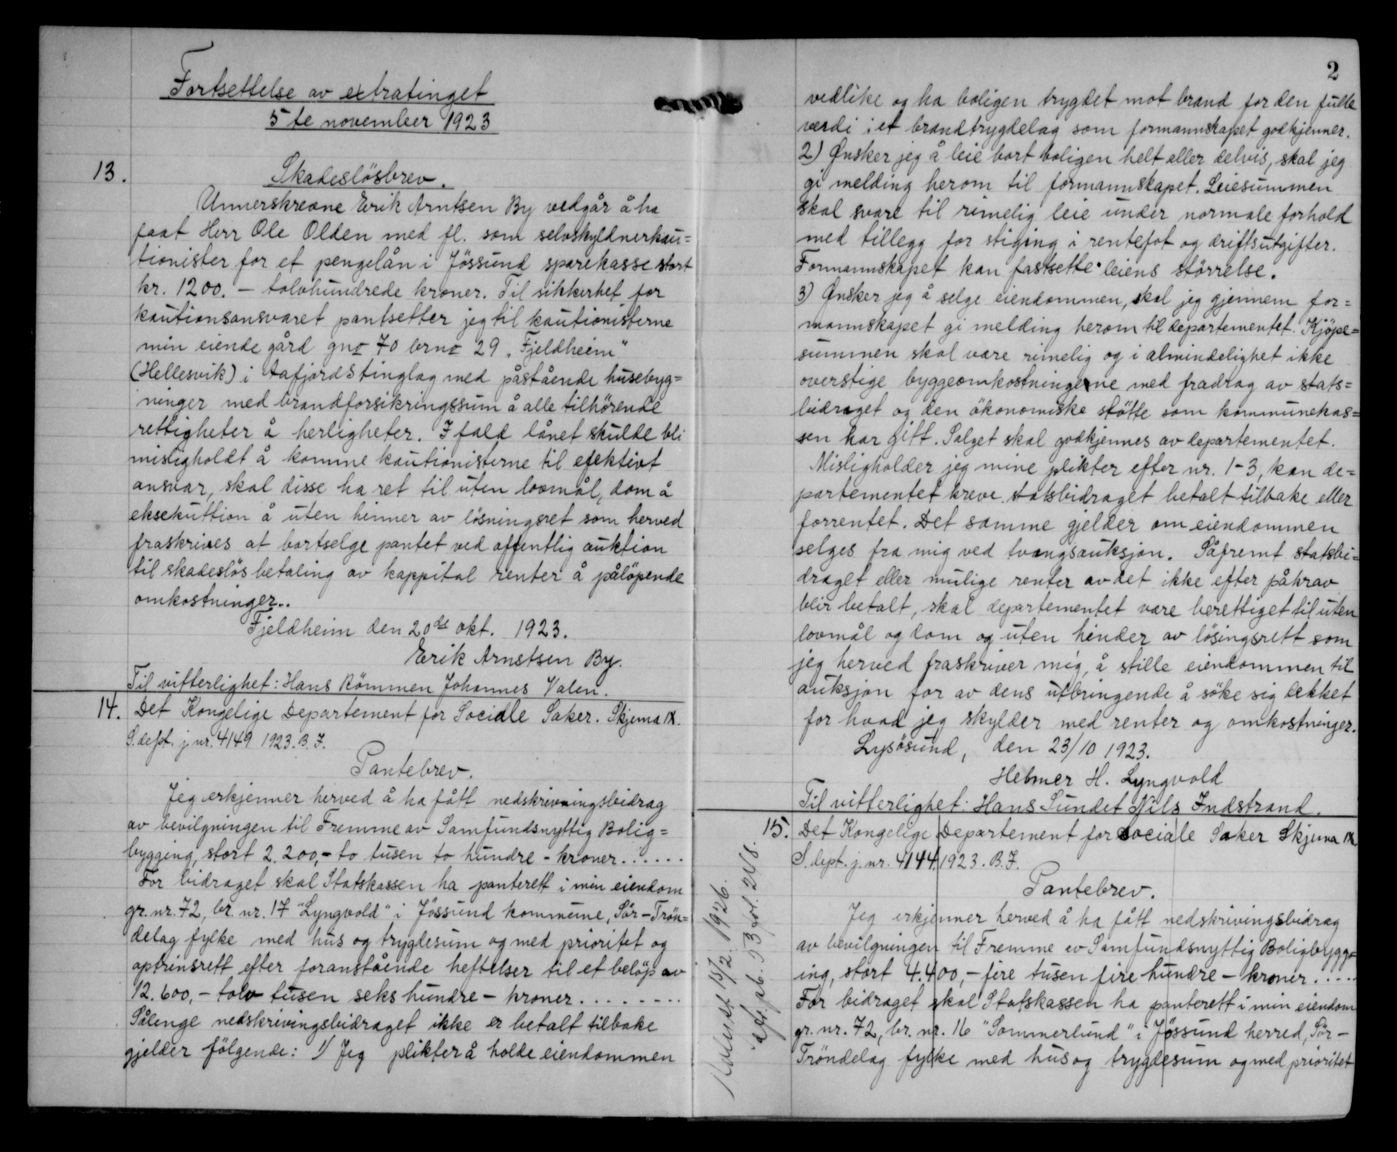 Fortsettelse av extratinget
5te november 1923
13.
Skadesløsbrev.
Unnerskrevne Erik Arntsen By vedgår å ha
faat Herr Ole Olden med fl. som selvskyldnerkau=
tionister for et pengelån i Jössund sparekasse stort
kr. 1200. – tolvhundrede kroner. Til sikkerhet for
kautionsansvaret pantsetter jeg til kautionisterne
min eiende gård gno 70 brno 29 "Fjeldheim"
(Hellesvik) i Aafjords tinglag med påstående husebyg=
ninger med brandforsikringssum å alle tilhörende
rettigheter å herligheter. I fald lånet skulde bli
misligholdt å komme kautionisterne til efektivt
ansvar, skal disse ha ret til uten lovmål, dom å
eksekuttion å uten hinner av lösningsret som herved
fraskrives at bortselge pantet ved offentlig auktion
til skadeslös betaling av kappital renter å pålöpende
omkostninger..
Fjeldheim den 20de okt. 1923.
Erik Arnstsen By.
Til vitterlighet: Hans Römmen Johannes Valen.
14. Det Kongelige Departement for Sociale Saker. Skjema IX.
S. dept. j. nr. 4149 1923. B. J.
Pantebrev.
Jeg erkjenner herved å ha fått nedskrivningsbidrag
av bevilgningen til Fremme av Samfundsnyttig Bolig=
bygging, stort 2.200,- to tusen to hundre - kroner......
For bidraget skal Statskassen ha panterett i min eiendom
gr. nr. 72, br. nr. 17 "Lyngvold" i Jössund kommune, Sör-Trön=
delag fylke med hus og trygdesum og med prioritet og
optrinsrett efter foranstående heftelser til et belöp av
12.600,- tolv tusen seks hundre - kroner........
Sålenge nedskrivingsbidraget ikke er betalt tilbake
gjelder fölgende: 1) Jeg plikter å holde eiendommen
2
vedlike og ha boligen trygdet mot brand for den fulle
verdi i et brandtrygdelag som formannskapet godkjenner.
2) Ønsker jeg å leie bort boligen helt eller delvis, skal jeg
gi melding herom til formannskapet. Leiesummen
skal svare til rimelig leie under normale forhold
med tillegg for stiging i rentefot og driftsutgifter.
Formannskapet kan fastsette leiens störrelse.
3) Ønsker jeg å selge eiendommen, skal jeg gjennem for=
mannskapet gi melding herom til departementet. Kjöpe=
summen skal være rimelig og i almindelighet ikke
overstige byggeomkostningene med fradrag av stats=
bidraget og den ökonomiske stötte som kommunekas=
sen har gitt. Salget skal godkjennes av departementet.
Misligholder jeg mine plikter efter nr. 1-3, kan de=
partementet kreve statsbidraget betalt tilbake eller
forrentet. Det samme gjelder om eiendommen
selges fra mig ved tvangsauksjon. Såfremt statsbi=
draget eller mulige renter av det ikke efter påkrav
blir betalt, skal departementet være berettiget til uten
lovmål og dom og uten hinder av lösingsrett som
jeg herved fraskriver mig, å stille eiendommen til
auksjon for av dens utbringende å söke sig dekket
for hvad jeg skylder med renter og omkostninger.
Lysösund, den 23/10 1923.
Helmer H. Lyngvold
Til vitterlighet: Hans Sundet Nils Indstrand.
15. Det Kongelige Departement for Sociale Saker Skjema IX
S. dept. j. nr. 4144 1923. B. J.
Pantebrev.
Jeg erkjenner herved å ha fått nedskrivingsbidrag
av bevilgningen til Fremme av Samfundsnyttig Boligbygg=
ing, stort 4.400,- fire tusen fire hundre - kroner.....
For bidraget skal Statskassen ha panterett i min eiendom
gr. nr. 72, br. nr. 16 "Sommerlund" i Jössund herred, Sör-
Tröndelag fylke med hus og trygdesum og med prioritet
1926.